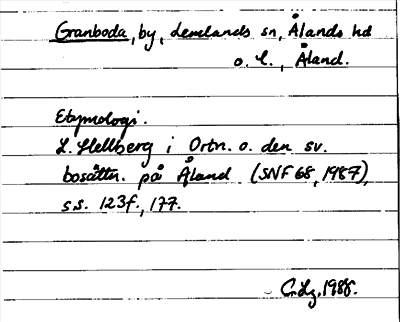 Granboda, by, Lemlands sn, Ålands hd
o. l., Åland.
Etymologi.
L. Hellberg i Ortn. o. den sv.
bosättn. på Åland (SNF 68, 1987),
ss. 123f., 177.
1988.